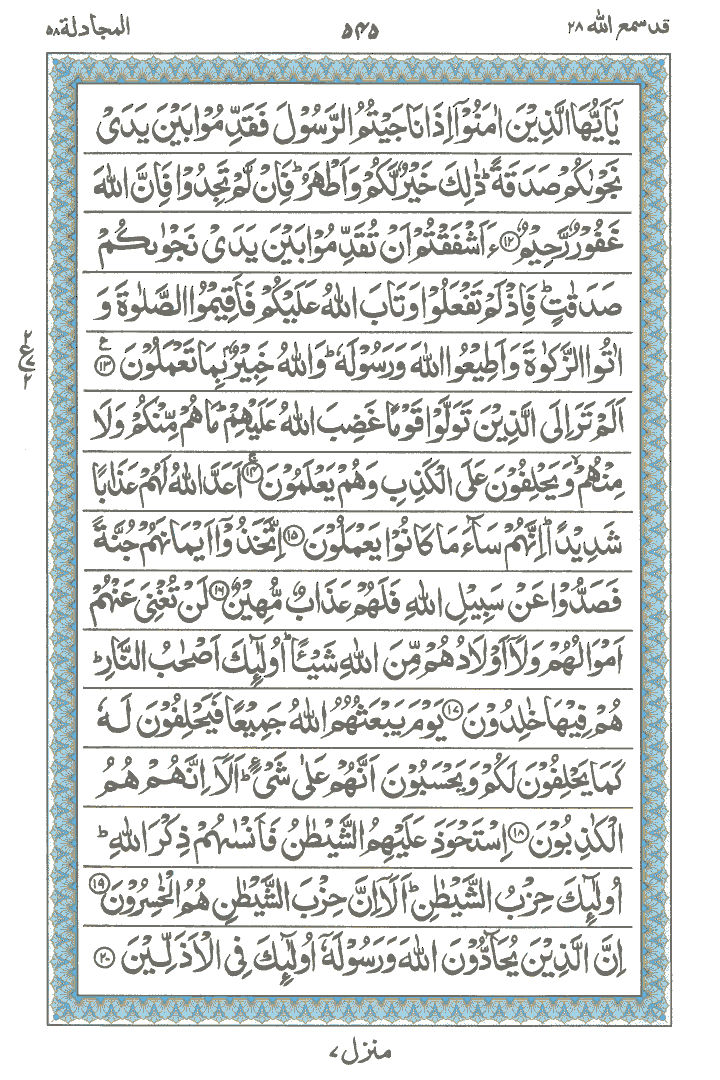 قد سمع الله ٢٨ ۵۴۵ المجادلة ٥٨
يٰۤاَيُّهَا الَّذِيْنَ اٰمَنُوْۤا اِذَا نَاجَيْتُمُ الرَّسُوْلَ فَقَدِّمُوْا بَيْنَ يَدَىْ
نَجْوٰىكُمْ صَدَقَةً ؕ ذٰلِكَ خَيْرٌ لَّكُمْ وَاَطْهَرُ ؕ فَاِنْ لَّمْ تَجِدُوْا فَاِنَّ اللّٰهَ
غَفُوْرٌ رَّحِيْمٌ ﴿۱۲﴾ ءَاَشْفَقْتُمْ اَنْ تُقَدِّمُوْا بَيْنَ يَدَىْ نَجْوٰىكُمْ
صَدَقٰتٍ ؕ فَاِذْ لَمْ تَفْعَلُوْا وَتَابَ اللّٰهُ عَلَيْكُمْ فَاَقِيْمُوا الصَّلٰوةَ وَ
اٰتُوا الزَّكٰوةَ وَاَطِيْعُوا اللّٰهَ وَرَسُوْلَهٗ ؕ وَاللّٰهُ خَبِيْرٌۢ بِمَا تَعْمَلُوْنَ ﴿۱۳﴾ ع
٢ ع ٢
اَلَمْ تَرَ اِلَى الَّذِيْنَ تَوَلَّوْا قَوْمًا غَضِبَ اللّٰهُ عَلَيْهِمْ ؕ مَا هُمْ مِّنْكُمْ وَلَا
مِنْهُمْ ۙ وَيَحْلِفُوْنَ عَلَى الْكَذِبِ وَهُمْ يَعْلَمُوْنَ ﴿۱۴﴾ اَعَدَّ اللّٰهُ لَهُمْ عَذَابًا
شَدِيْدًا ؕ اِنَّهُمْ سَآءَ مَا كَانُوْا يَعْمَلُوْنَ ﴿۱۵﴾ اِتَّخَذُوْۤا اَيْمَانَهُمْ جُنَّةً
فَصَدُّوْا عَنْ سَبِيْلِ اللّٰهِ فَلَهُمْ عَذَابٌ مُّهِيْنٌ ﴿۱۶﴾ لَنْ تُغْنِىَ عَنْهُمْ
اَمْوَالُهُمْ وَلَاۤ اَوْلَادُهُمْ مِّنَ اللّٰهِ شَيْـًٔا ؕ اُولٰٓئِكَ اَصْحٰبُ النَّارِ ؕ
هُمْ فِيْهَا خٰلِدُوْنَ ﴿۱۷﴾ يَوْمَ يَبْعَثُهُمُ اللّٰهُ جَمِيْعًا فَيَحْلِفُوْنَ لَهٗ
كَمَا يَحْلِفُوْنَ لَكُمْ وَيَحْسَبُوْنَ اَنَّهُمْ عَلٰى شَىْءٍ ؕ اَلَاۤ اِنَّهُمْ هُمُ
الْكٰذِبُوْنَ ﴿۱۸﴾ اِسْتَحْوَذَ عَلَيْهِمُ الشَّيْطٰنُ فَاَنْسٰىهُمْ ذِكْرَ اللّٰهِ ؕ
اُولٰٓئِكَ حِزْبُ الشَّيْطٰنِ ؕ اَلَاۤ اِنَّ حِزْبَ الشَّيْطٰنِ هُمُ الْخٰسِرُوْنَ ﴿۱۹﴾
اِنَّ الَّذِيْنَ يُحَآدُّوْنَ اللّٰهَ وَرَسُوْلَهٗۤ اُولٰٓئِكَ فِى الْاَذَلِّيْنَ ﴿۲۰﴾
منزل ٧